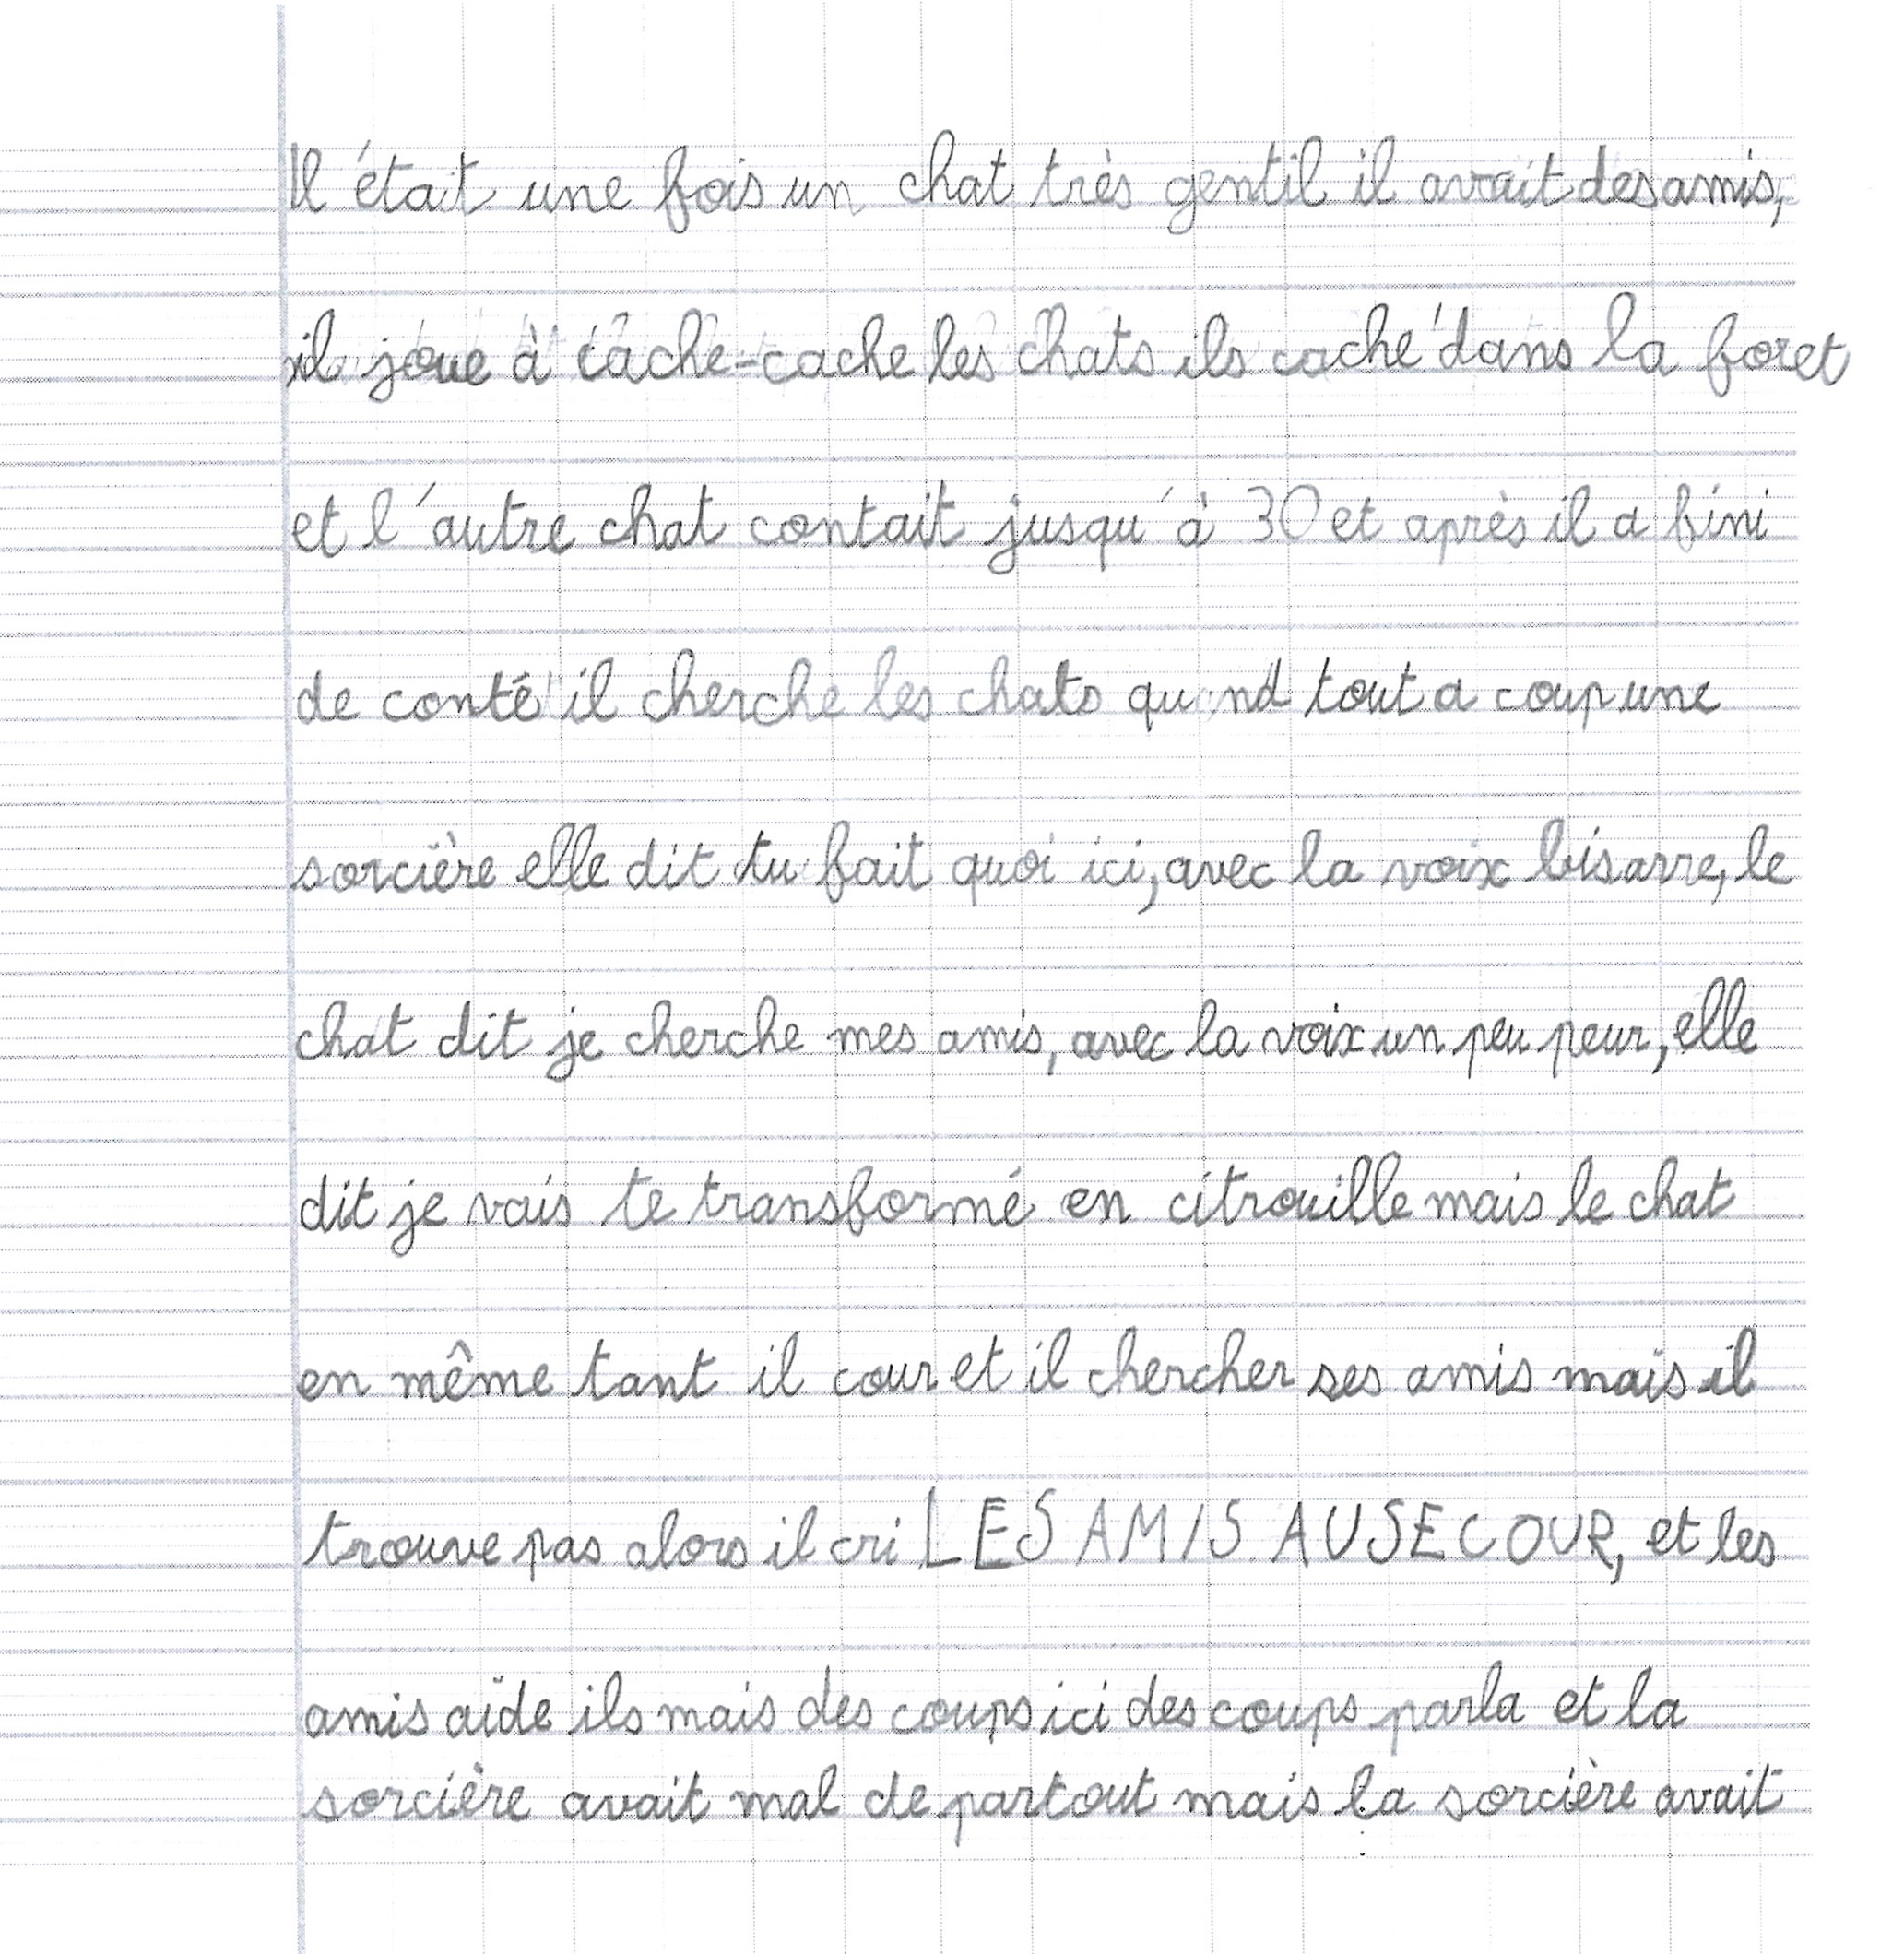 Il était une fois un chat très gentil il avait des amis,
il joue à cache-cache les chats ils caché dans la foret
et l'autre chat contait jusqu'à 30 et après il a fini
de conté il cherche les chats quand tout a coup une
sorcière elle dit tu fait quoi ici, avec la voix bisarre, le
chat dit je cherche mes amis, avec la voix un peu peur, elle
dit je vais te transformé en citrouille mais le chat
en même tant il cour et il chercher ses amis mais il
trouve pas alors il cri LES AMIS AU SECOUR, et les
amis aide ils mais des coups ici des coups parla et la
sorcière avait mal de partout mais la sorcière avait